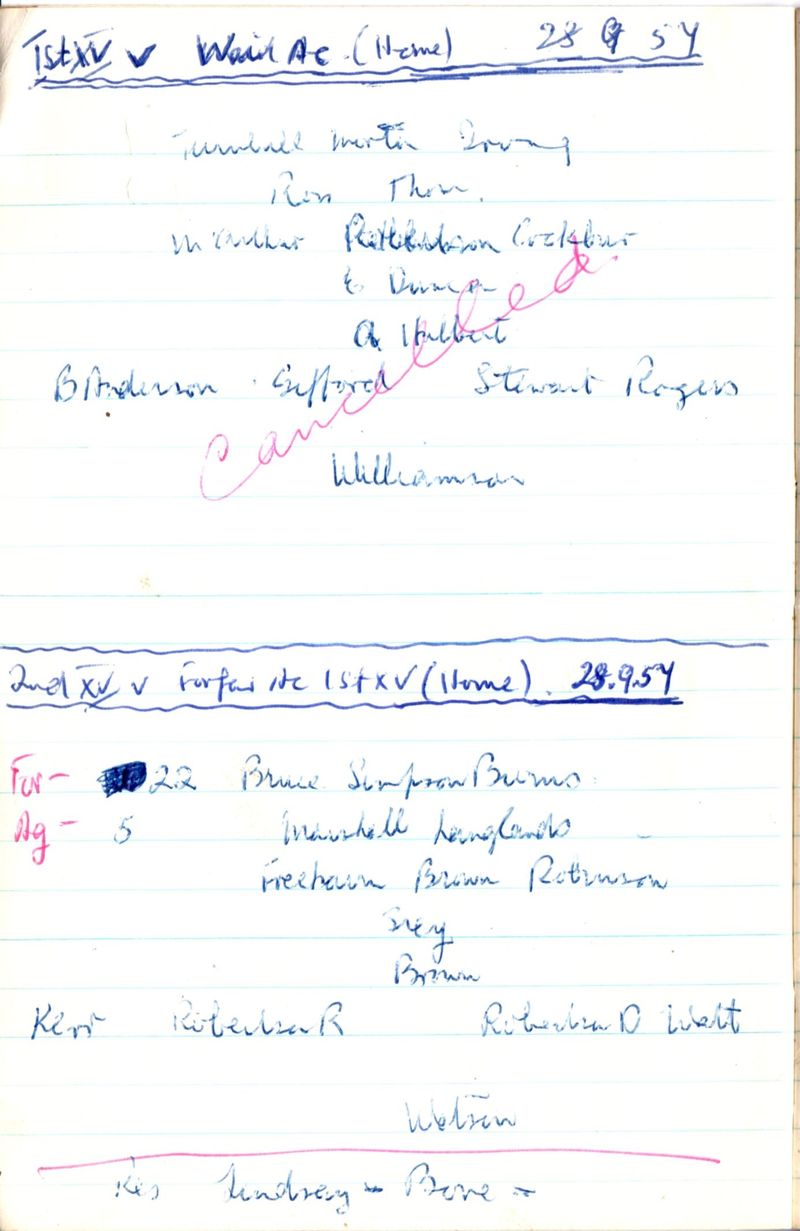 1st XV v Waid Ac. (Home) 28 9 57
Turnbull Martin Irving
Ross Thom.
McArthur Robertson Cockburn
E Duncan
A Hulbert
B Anderson Gifford Stewart Rogers
Cancelled
Williamson
2nd XV v Forfar Ac 1st XV (Home). 28.9.57
For - 22 Bruce Simpson Burns
Ag - 5 Marshall Langlands
Freebairn Brown Robinson
Grey
Brown
Kerr Robertson R Robertson D Watt
Watson
Res Lindsay - Bone -